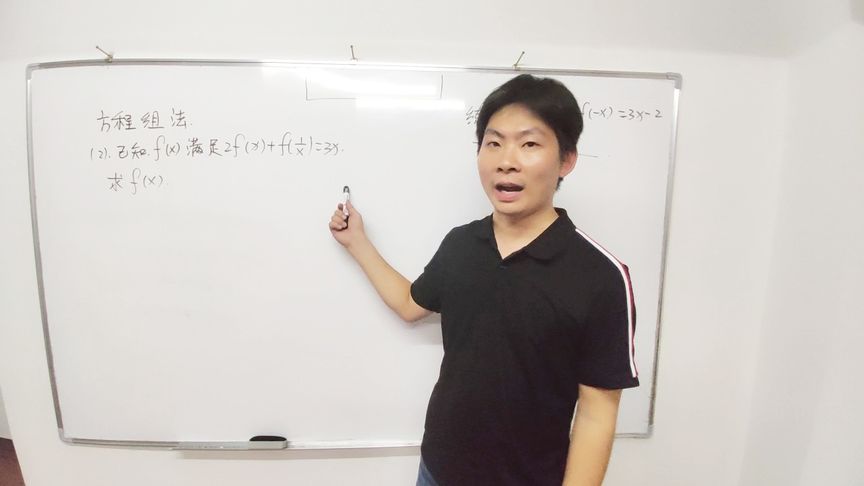 方程组法.
(2). 已知 f(x) 满足 2f(x)+f(1/x)=3x.
求 f(x).
f(-x)=3x-2